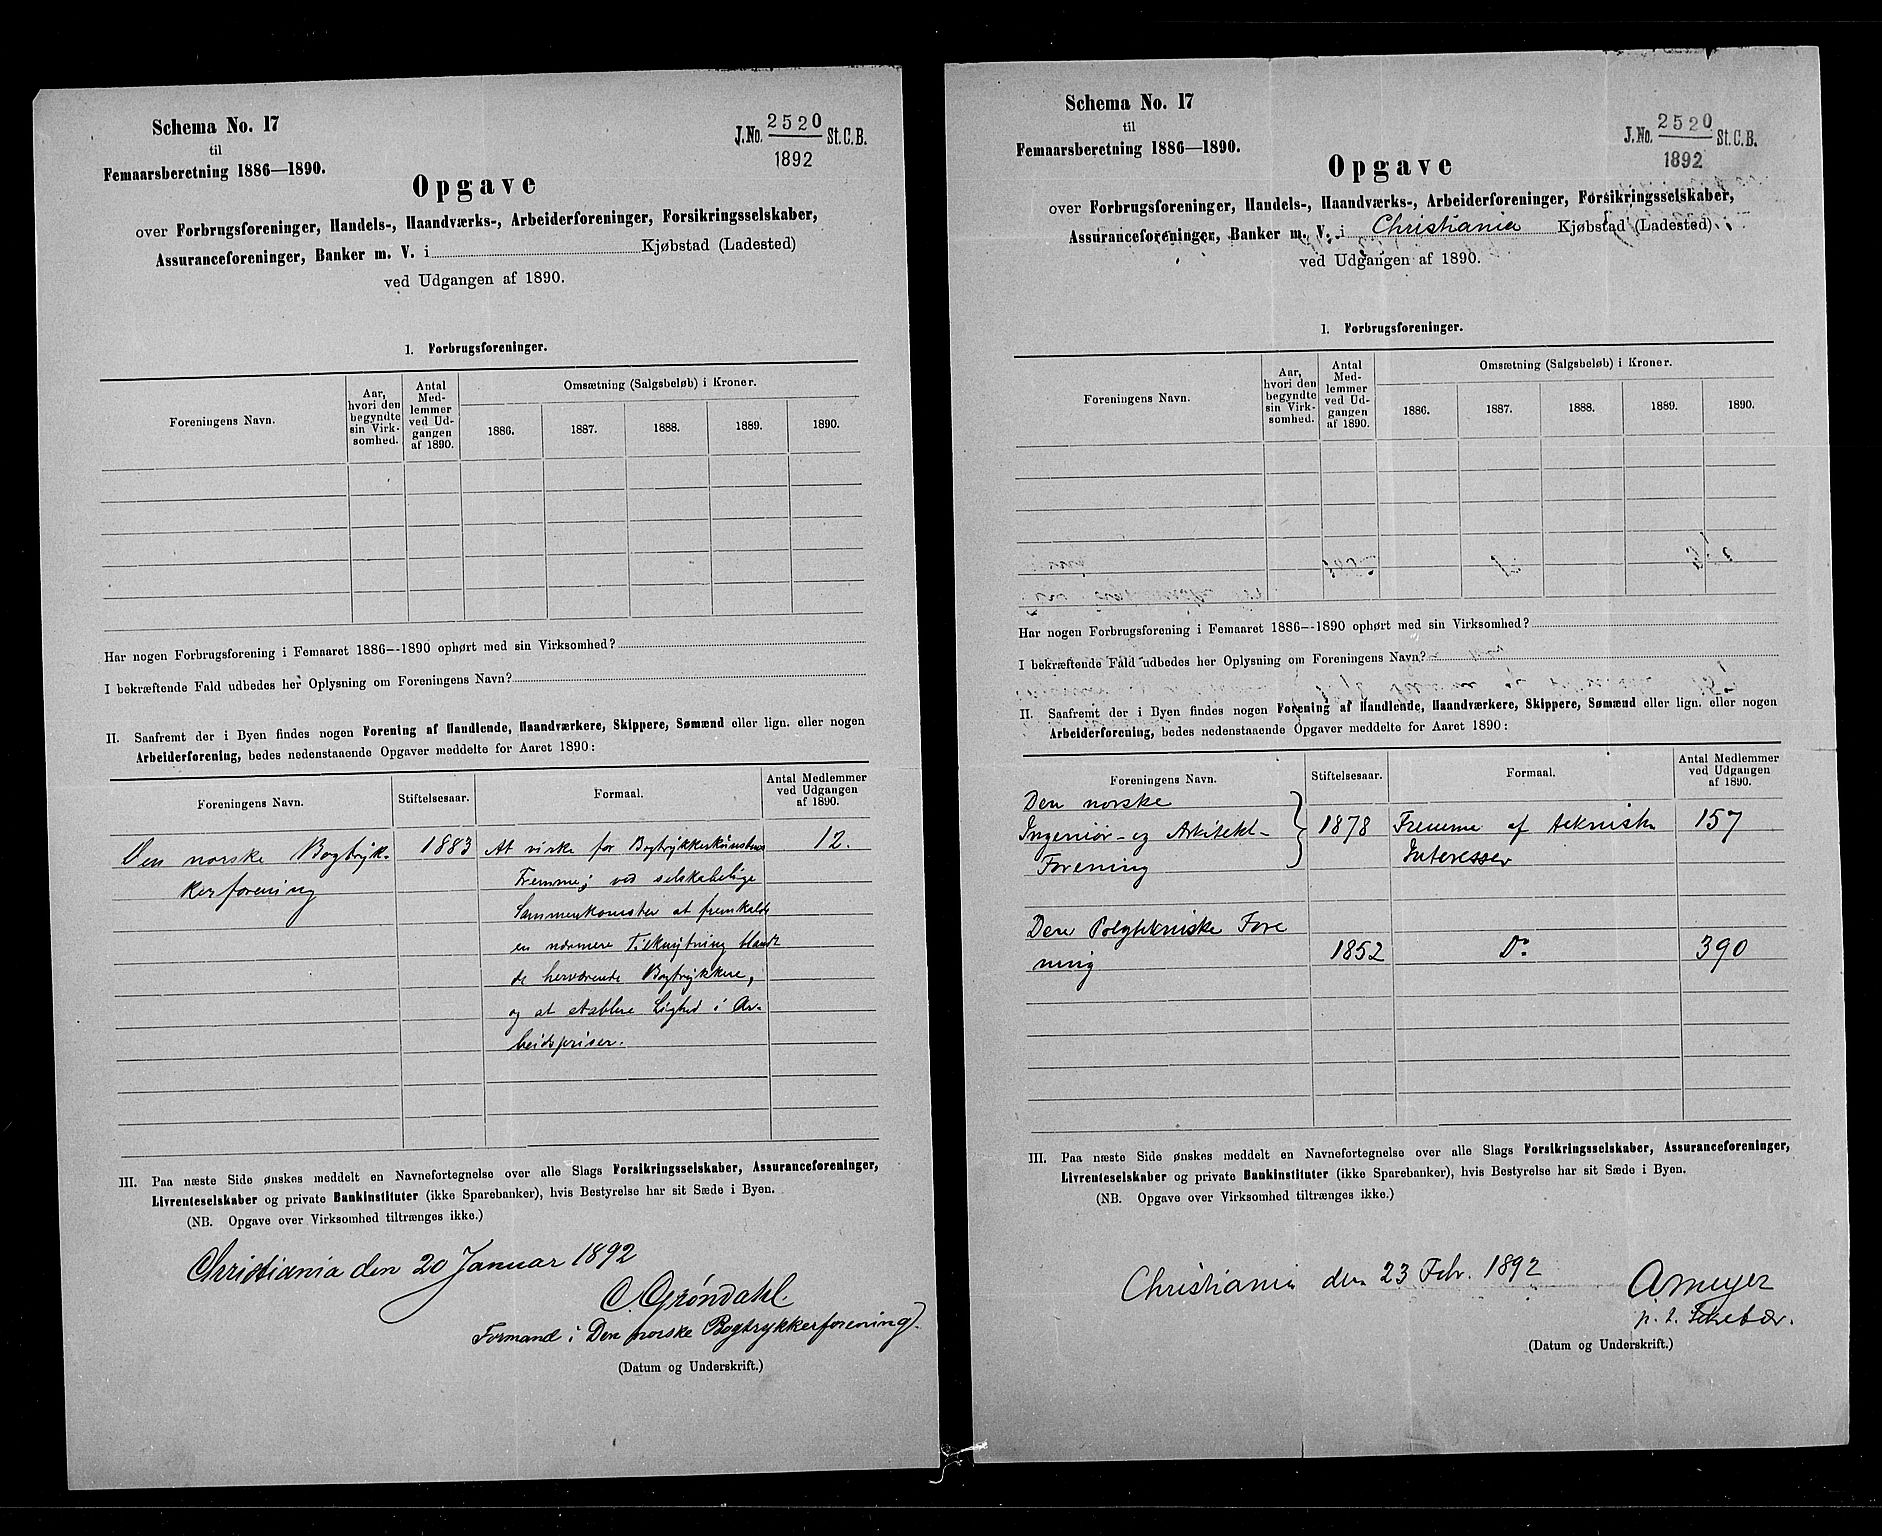 Schema No. 17
til
Femaarsberetning 1886—1890.
J. No. 2520 St. C. B.
1892
Opgave
over Forbrugsforeninger, Handels-, Haandværks-, Arbeiderforeninger, Forsikringsselskaber,
Assuranceforeninger, Banker m. V. i Kjøbstad (Ladested)
ved Udgangen af 1890.
I. Forbrugsforeninger.
Foreningens Navn.
Aar, hvori den begyndte sin Virksomhed.
Antal Medlemmer ved Udgangen af 1890.
Omsætning (Salgsbeløb) i Kroner.
1886. 1887. 1888. 1889. 1890.
Har nogen Forbrugsforening i Femaaret 1886—1890 ophørt med sin Virksomhed?
I bekræftende Fald udbedes her Oplysning om Foreningens Navn?
II. Saafremt der i Byen findes nogen Forening af Handlende, Haandværkere, Skippere, Sømænd eller lign. eller nogen
Arbeiderforening, bedes nedenstaaende Opgaver meddelte for Aaret 1890:
Foreningens Navn. Stiftelsesaar. Formaal. Antal Medlemmer ved Udgangen af 1890.
Den norske Bogtryk- 1883 At virke for Bogtrykkerkunstens 12.
kerforening Fremme; ved selskabelige
Sammenkomster at fremkalde
en nærmere Tilknytning blandt
de herværende Bogtrykkere,
og at etablere Lighed i Ar-
beidspriser.
III. Paa næste Side ønskes meddelt en Navnefortegnelse over alle Slags Forsikringsselskaber, Assuranceforeninger,
Livrenteselskaber og private Bankinstituter (ikke Sparebanker), hvis Bestyrelse har sit Sæde i Byen.
(NB. Opgave over Virksomhed tiltrænges ikke.)
Christiania den 20 Januar 1892
C. Grøndahl.
Formand i Den norske Bogtrykkerforening.
(Datum og Underskrift.)
Schema No. 17
til
Femaarsberetning 1886—1890.
J. No. 2520 St. C. B.
1892
Opgave
over Forbrugsforeninger, Handels-, Haandværks-, Arbeiderforeninger, Forsikringsselskaber,
Assuranceforeninger, Banker m. V. i Christiania Kjøbstad (Ladested)
ved Udgangen af 1890.
I. Forbrugsforeninger.
Foreningens Navn.
Aar, hvori den begyndte sin Virksomhed.
Antal Medlemmer ved Udgangen af 1890.
Omsætning (Salgsbeløb) i Kroner.
1886. 1887. 1888. 1889. 1890.
Har nogen Forbrugsforening i Femaaret 1886—1890 ophørt med sin Virksomhed?
I bekræftende Fald udbedes her Oplysning om Foreningens Navn?
II. Saafremt der i Byen findes nogen Forening af Handlende, Haandværkere, Skippere, Sømænd eller lign. eller nogen
Arbeiderforening, bedes nedenstaaende Opgaver meddelte for Aaret 1890:
Foreningens Navn. Stiftelsesaar. Formaal. Antal Medlemmer ved Udgangen af 1890.
Den norske
Ingeniør- og Arkitekt- 1878 Fremme af tekniske 157
Forening Interesser
Den Polytekniske Fore
ning 1852 Do 390
III. Paa næste Side ønskes meddelt en Navnefortegnelse over alle Slags Forsikringsselskaber, Assuranceforeninger,
Livrenteselskaber og private Bankinstituter (ikke Sparebanker), hvis Bestyrelse har sit Sæde i Byen.
(NB. Opgave over Virksomhed tiltrænges ikke.)
Christiania den 23 Febr. 1892
A Meyer
p. t. Sekretær.
(Datum og Underskrift.)